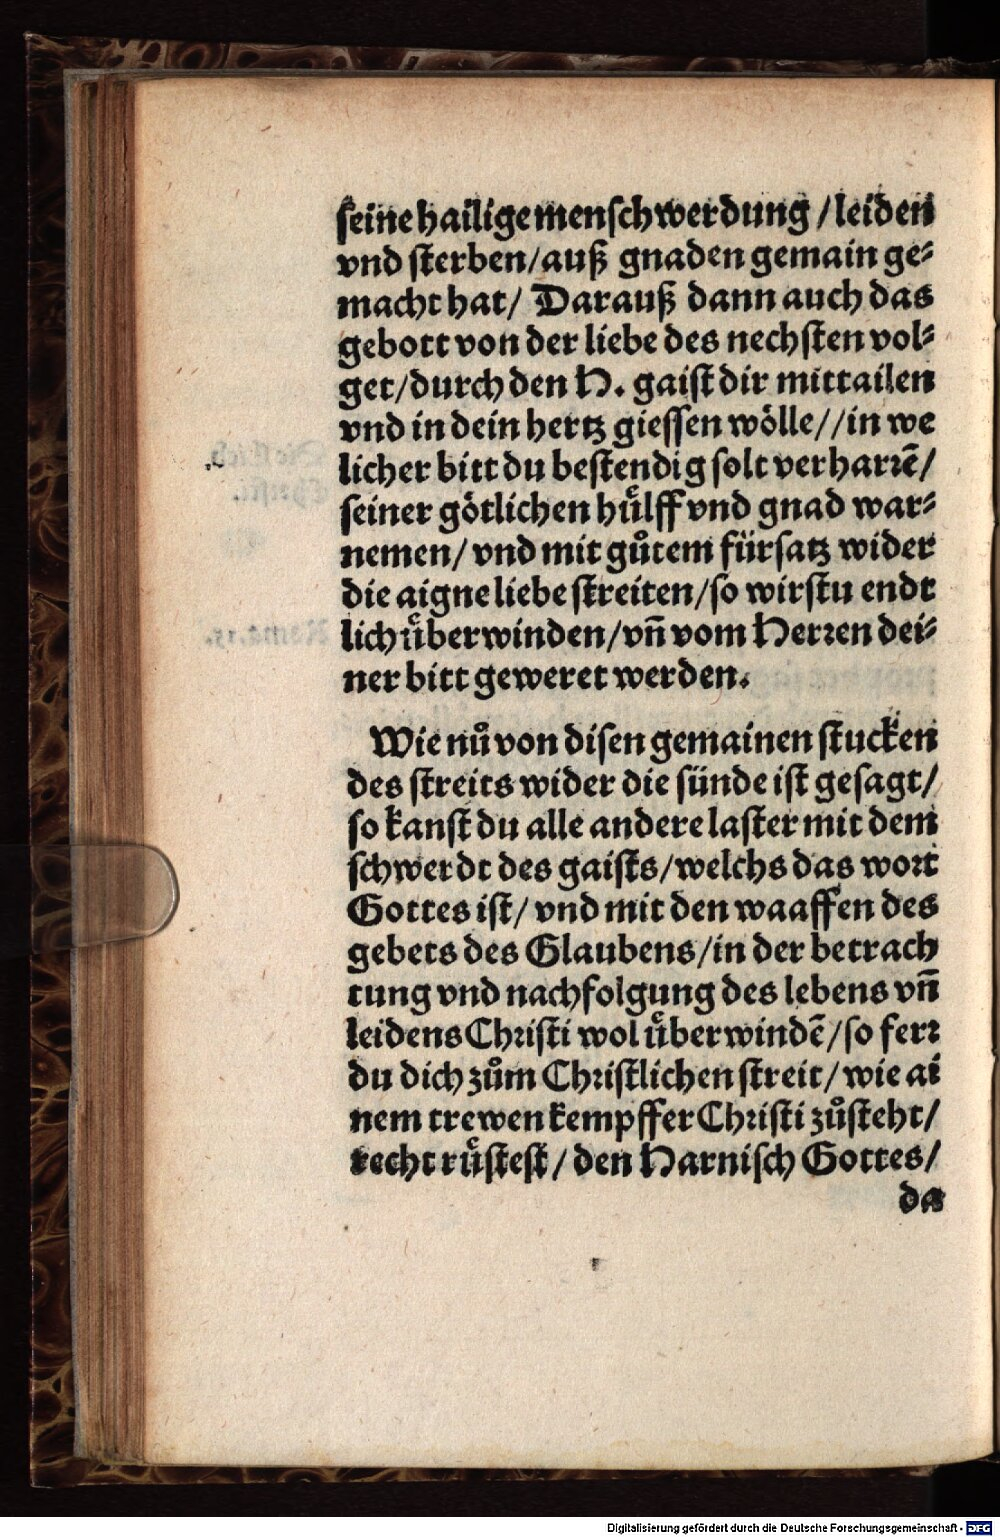 seine hailige menschwerdung / leiden
vnd sterben / auß gnaden gemain ge⸗
macht hat / Darauß dann auch das
gebott von der liebe des nechsten vol⸗
get / durch den H. gaist dir mittailen
vnd in dein hertz giessen wölle / / in we
licher bitt du bestendig solt verharrē /
seiner götlichen huͤlff vnd gnad war⸗
nemen / vnd mit guͦtem fürsatz wider
die aigne liebe streiten / so wirstu endt
lich uͤberwinden / vn̄ vom Herren dei⸗
ner bitt geweret werden.
Wie nuͦ von disen gemainen stucken
des streits wider die sünde ist gesagt /
so kanst du alle andere laster mit dem
schwerdt des gaists / welchs das wort
Gottes ist / vnd mit den waaffen des
gebets des Glaubens / in der betrach
tung vnd nachfolgung des lebens vn̄
leidens Christi wol uͤberwindē / so ferr
du dich zuͦm Christlichen streit / wie ai
nem trewen kempffer Christi zuͦsteht /
recht ruͤstest / den Harnisch Gottes /
da
Digitalisierung gefördert durch die Deutsche Forschungsgemeinschaft - DFG